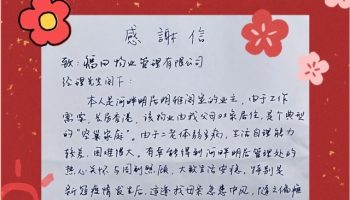 感謝信
致：福田物业管理有限公司
经理先生阁下：
本人是河畔明居明雅阁的业主，由于工作
需要，长居香港，该物业由我父母以来居住，是个典型
的“空巢家庭”。由于二老体弱多病，生活自理能力
较差，困难很大，有幸能得到河畔明居管理处的
热心关怀与周到照顾，大致生活安稳，特别是
新冠疫情发生后，适逢我母亲患中风，随之偏瘫